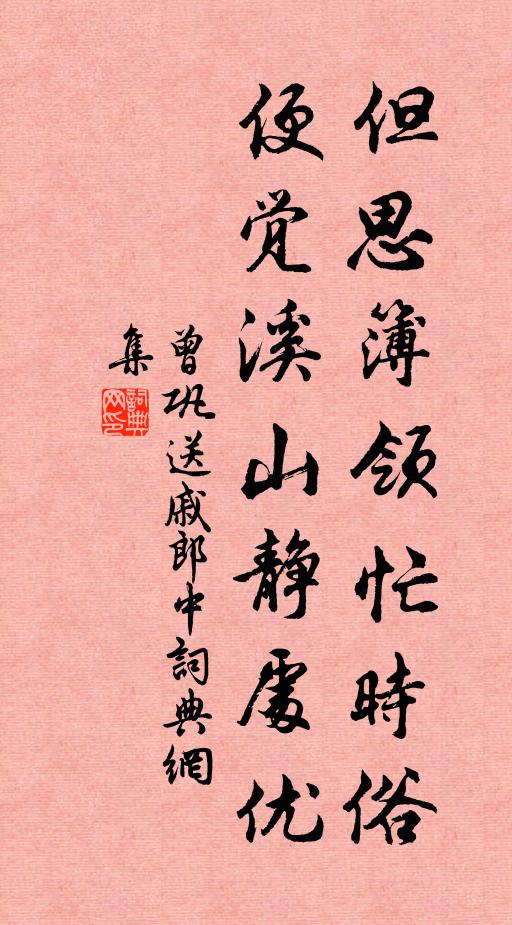 但思簿领忙時俗
便觉溪山静處优
曾巩送戚郎中詞典網
集
詞典
网印